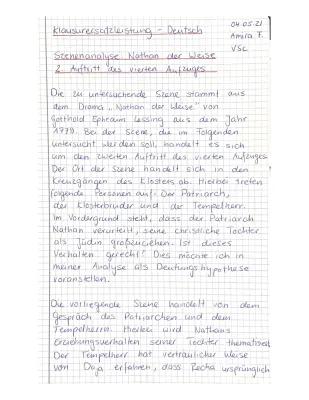 Klausurersatzleistung - Deutsch
04.05.21
Amira F.
VSc
Szenenanalyse Nathan der Weise
2. Auftritt des vierten Aufzuges
Die zu untersuchende Szene stammt aus
dem Drama „Nathan der Weise" von
Gotthold Ephraim Lessing aus dem Jahr
1779. Bei der Szene, die im Folgenden
untersucht werden soll, handelt es sich
um den zweiten Auftritt des vierten Aufzuges.
Der Ort der Szene handelt sich in den
Kreuzgängen des Klosters ab. Hierbei treten
folgende Personen auf: Der Patriarch,
der Klosterbruder und der Tempelherr.
Im Vordergrund steht, dass der Patriarch
Nathan verurteilt, seine christliche Tochter
als Jüdin großzuziehen. Ist dieses
Verhalten gerecht? Dies möchte ich in
meiner Analyse als Deutungshypothese
voranstellen.
Die vorliegende Szene handelt von dem
Gespräch des Patriarchen und dem
Tempelherrn. Hierbei wird Nathans
Erziehungsverhalten seiner Tochter thematisiert.
Der Tempelherr hat vertraulicher Weise
von Daja erfahren, dass Recha ursprünglich